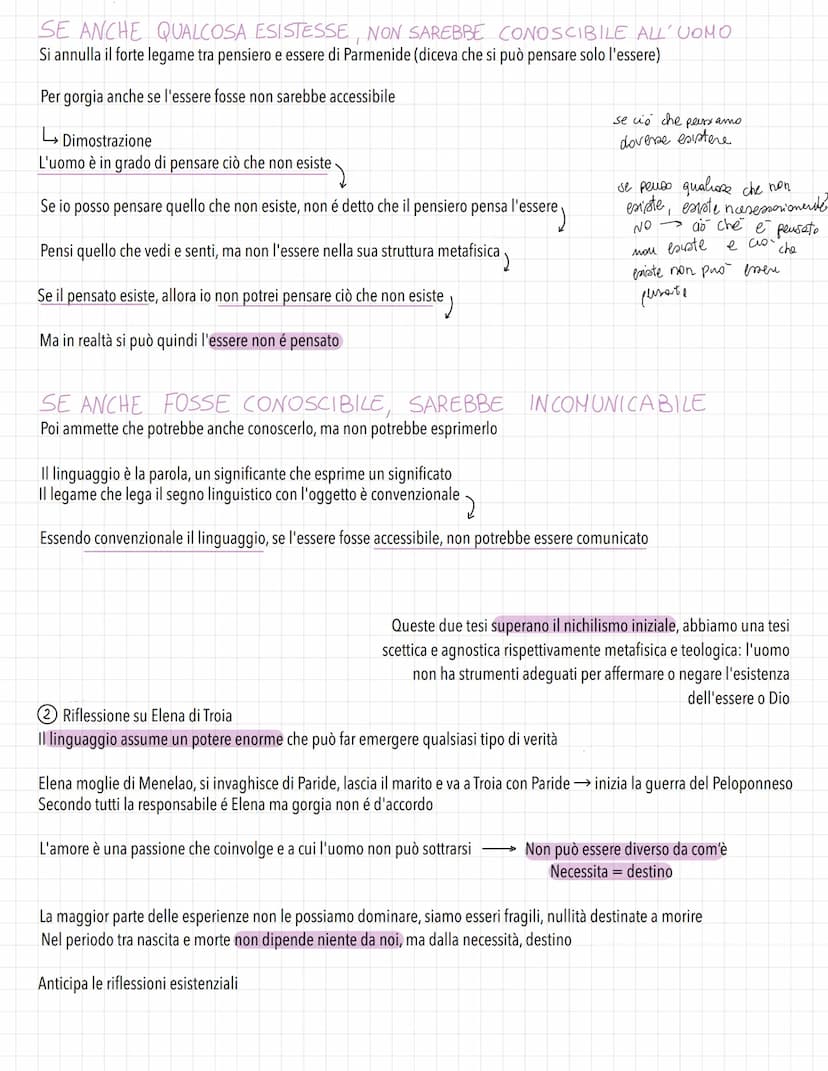 SE ANCHE QUALCOSA ESISTESSE, NON SAREBBE CONOSCIBILE ALL'UOMO
Si annulla il forte legame tra pensiero e essere di Parmenide (diceva che si può pensare solo l'essere)
Per gorgia anche se l'essere fosse non sarebbe accessibile
Dimostrazione
L'uomo è in grado di pensare ciò che non esiste
Se io posso pensare quello che non esiste, non é detto che il pensiero pensa l'essere
Pensi quello che vedi e senti, ma non l'essere nella sua struttura metafisica
Se il pensato esiste, allora io non potrei pensare ciò che non esiste
Ma in realtà si può quindi l'essere non é pensato
se ciò che pensiamo
dovesse esistere
se penso qualcosa che non
esiste, esiste necessariamente?
NO → ciò che è pensato
non esiste e ciò che
esiste non può essere
pensato
SE ANCHE FOSSE CONOSCIBILE, SAREBBE INCOMUNICABILE
Poi ammette che potrebbe anche conoscerlo, ma non potrebbe esprimerlo
Il linguaggio è la parola, un significante che esprime un significato
Il legame che lega il segno linguistico con l'oggetto è convenzionale
Essendo convenzionale il linguaggio, se l'essere fosse accessibile, non potrebbe essere comunicato
Queste due tesi superano il nichilismo iniziale, abbiamo una tesi
scettica e agnostica rispettivamente metafisica e teologica: l'uomo
non ha strumenti adeguati per affermare o negare l'esistenza
dell'essere o Dio
② Riflessione su Elena di Troia
Il linguaggio assume un potere enorme che può far emergere qualsiasi tipo di verità
Elena moglie di Menelao, si invaghisce di Paride, lascia il marito e va a Troia con Paride → inizia la guerra del Peloponneso
Secondo tutti la responsabile é Elena ma gorgia non é d'accordo
L'amore è una passione che coinvolge e a cui l'uomo non può sottrarsi → Non può essere diverso da com'è
Necessita = destino
La maggior parte delle esperienze non le possiamo dominare, siamo esseri fragili, nullità destinate a morire
Nel periodo tra nascita e morte non dipende niente da noi, ma dalla necessità, destino
Anticipa le riflessioni esistenziali